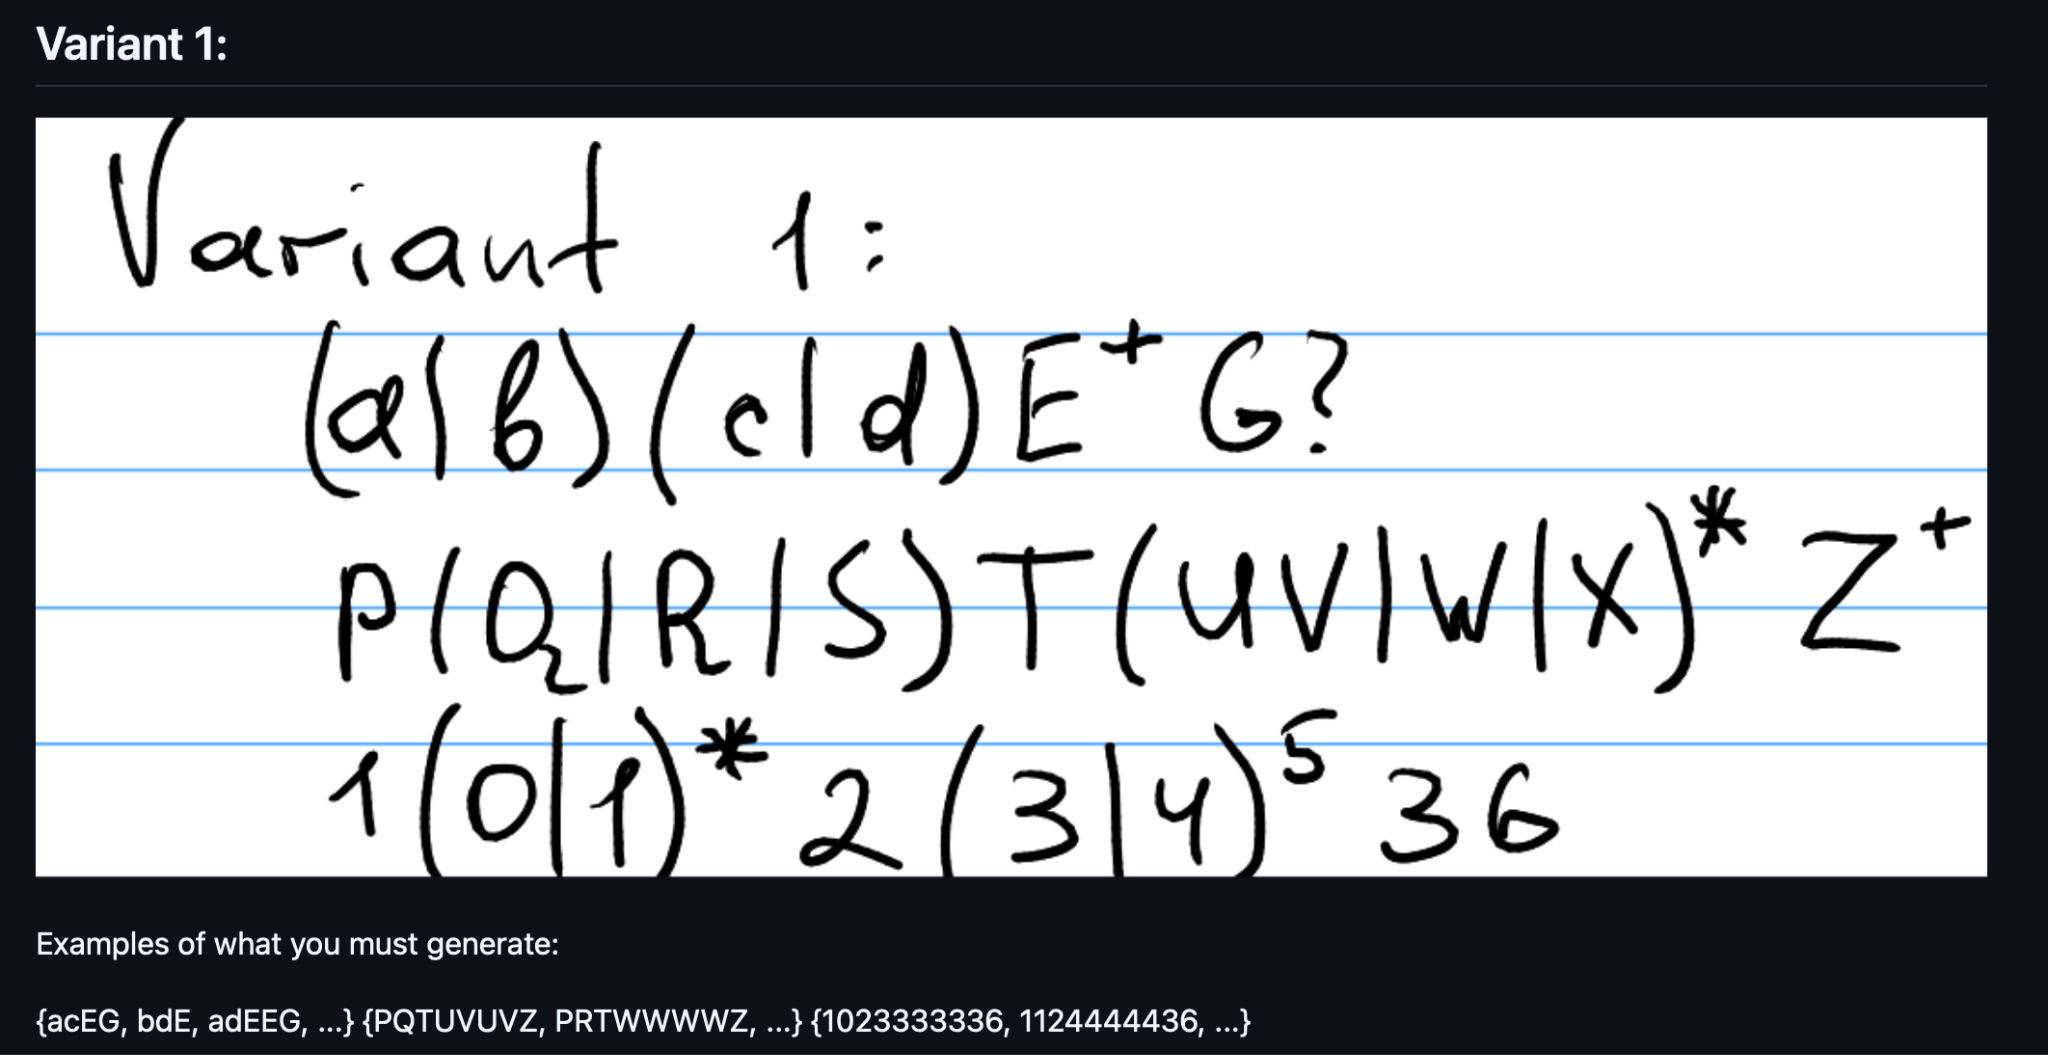 Variant 1:
Variant 1:
(a|b)(c|d)E⁺G?
P(Q|R|S)T(UV|W|X)*Z⁺
1(0|1)*2(3|4)⁵36
Examples of what you must generate:
{acEG, bdE, adEEG, ...} {PQTUVUVZ, PRTWWWWZ, ...} {1023333336, 1124444436, ...}